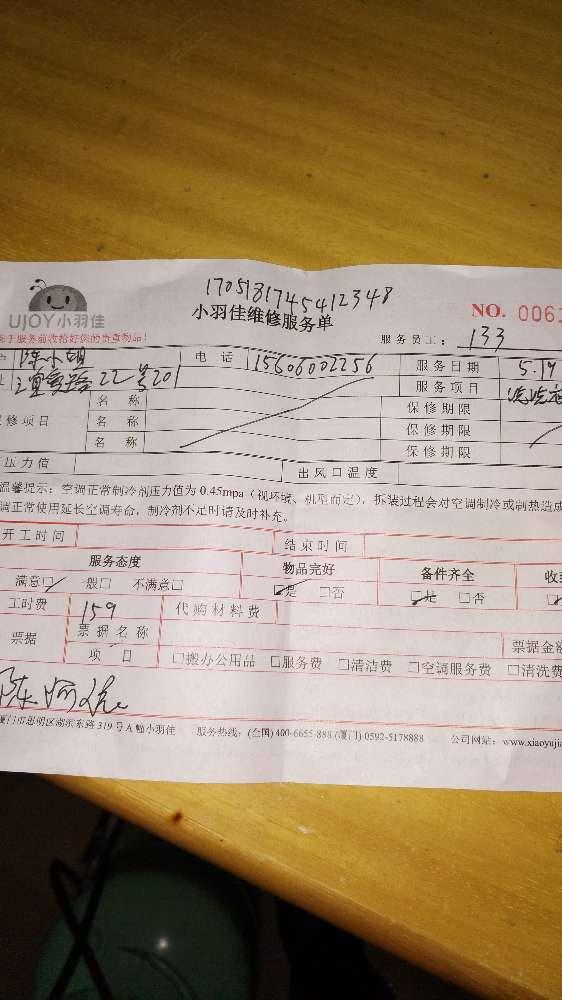 170518174541 2348
UJOY小羽佳
小羽佳维修服务单
NO. 0061
服务员工： 133
陈小姐 电 话 15606002256 服务日期 5.19
22号201 服务项目
名 称 保修期限
修项目 名 称 保修期限
名 称 保修期限
压力值 出风口温度
温馨提示：空调正常制冷剂压力值为 0.45mpa（视环境、机型而定），拆装过程会对空调制冷或制热造成
调正常使用延长空调寿命，制冷剂不足时请及时补充。
开工时间 结束时间
服务态度 物品完好 备件齐全
满意□ 一般□ 不满意□ □是 □否 □是 □否
工时费 159 代购材料费
票据 票据名称 票据金额
项 目 □搬办公用品 □服务费 □清洁费 □空调服务费 □清洗费
厦门市思明区湖滨东路 319 号 A 幢小羽佳 服务热线：(全国) 400-6655-888 (厦门) 0592-5178888 公司网址：www.xiaoyujia